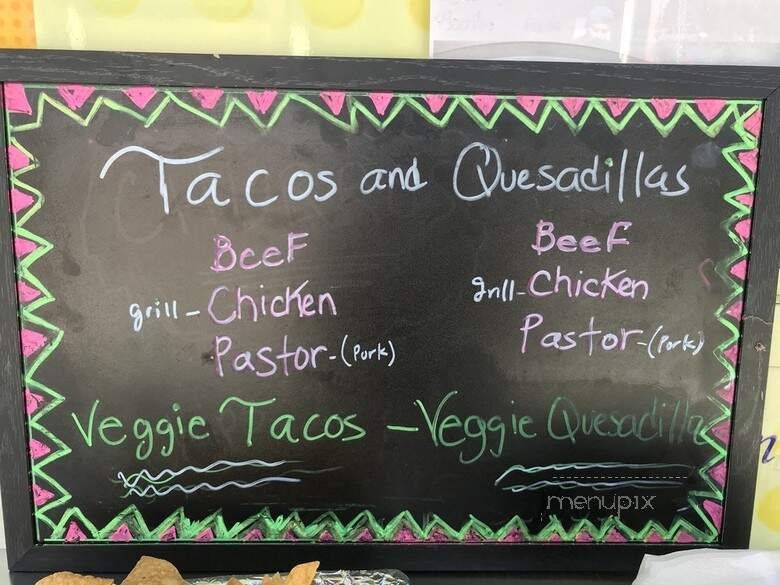 Tacos and Quesadillas
Beef
grill - Chicken
Pastor - (Pork)
Beef
grill - Chicken
Pastor - (Pork)
Veggie Tacos - Veggie Quesadilla
menupix